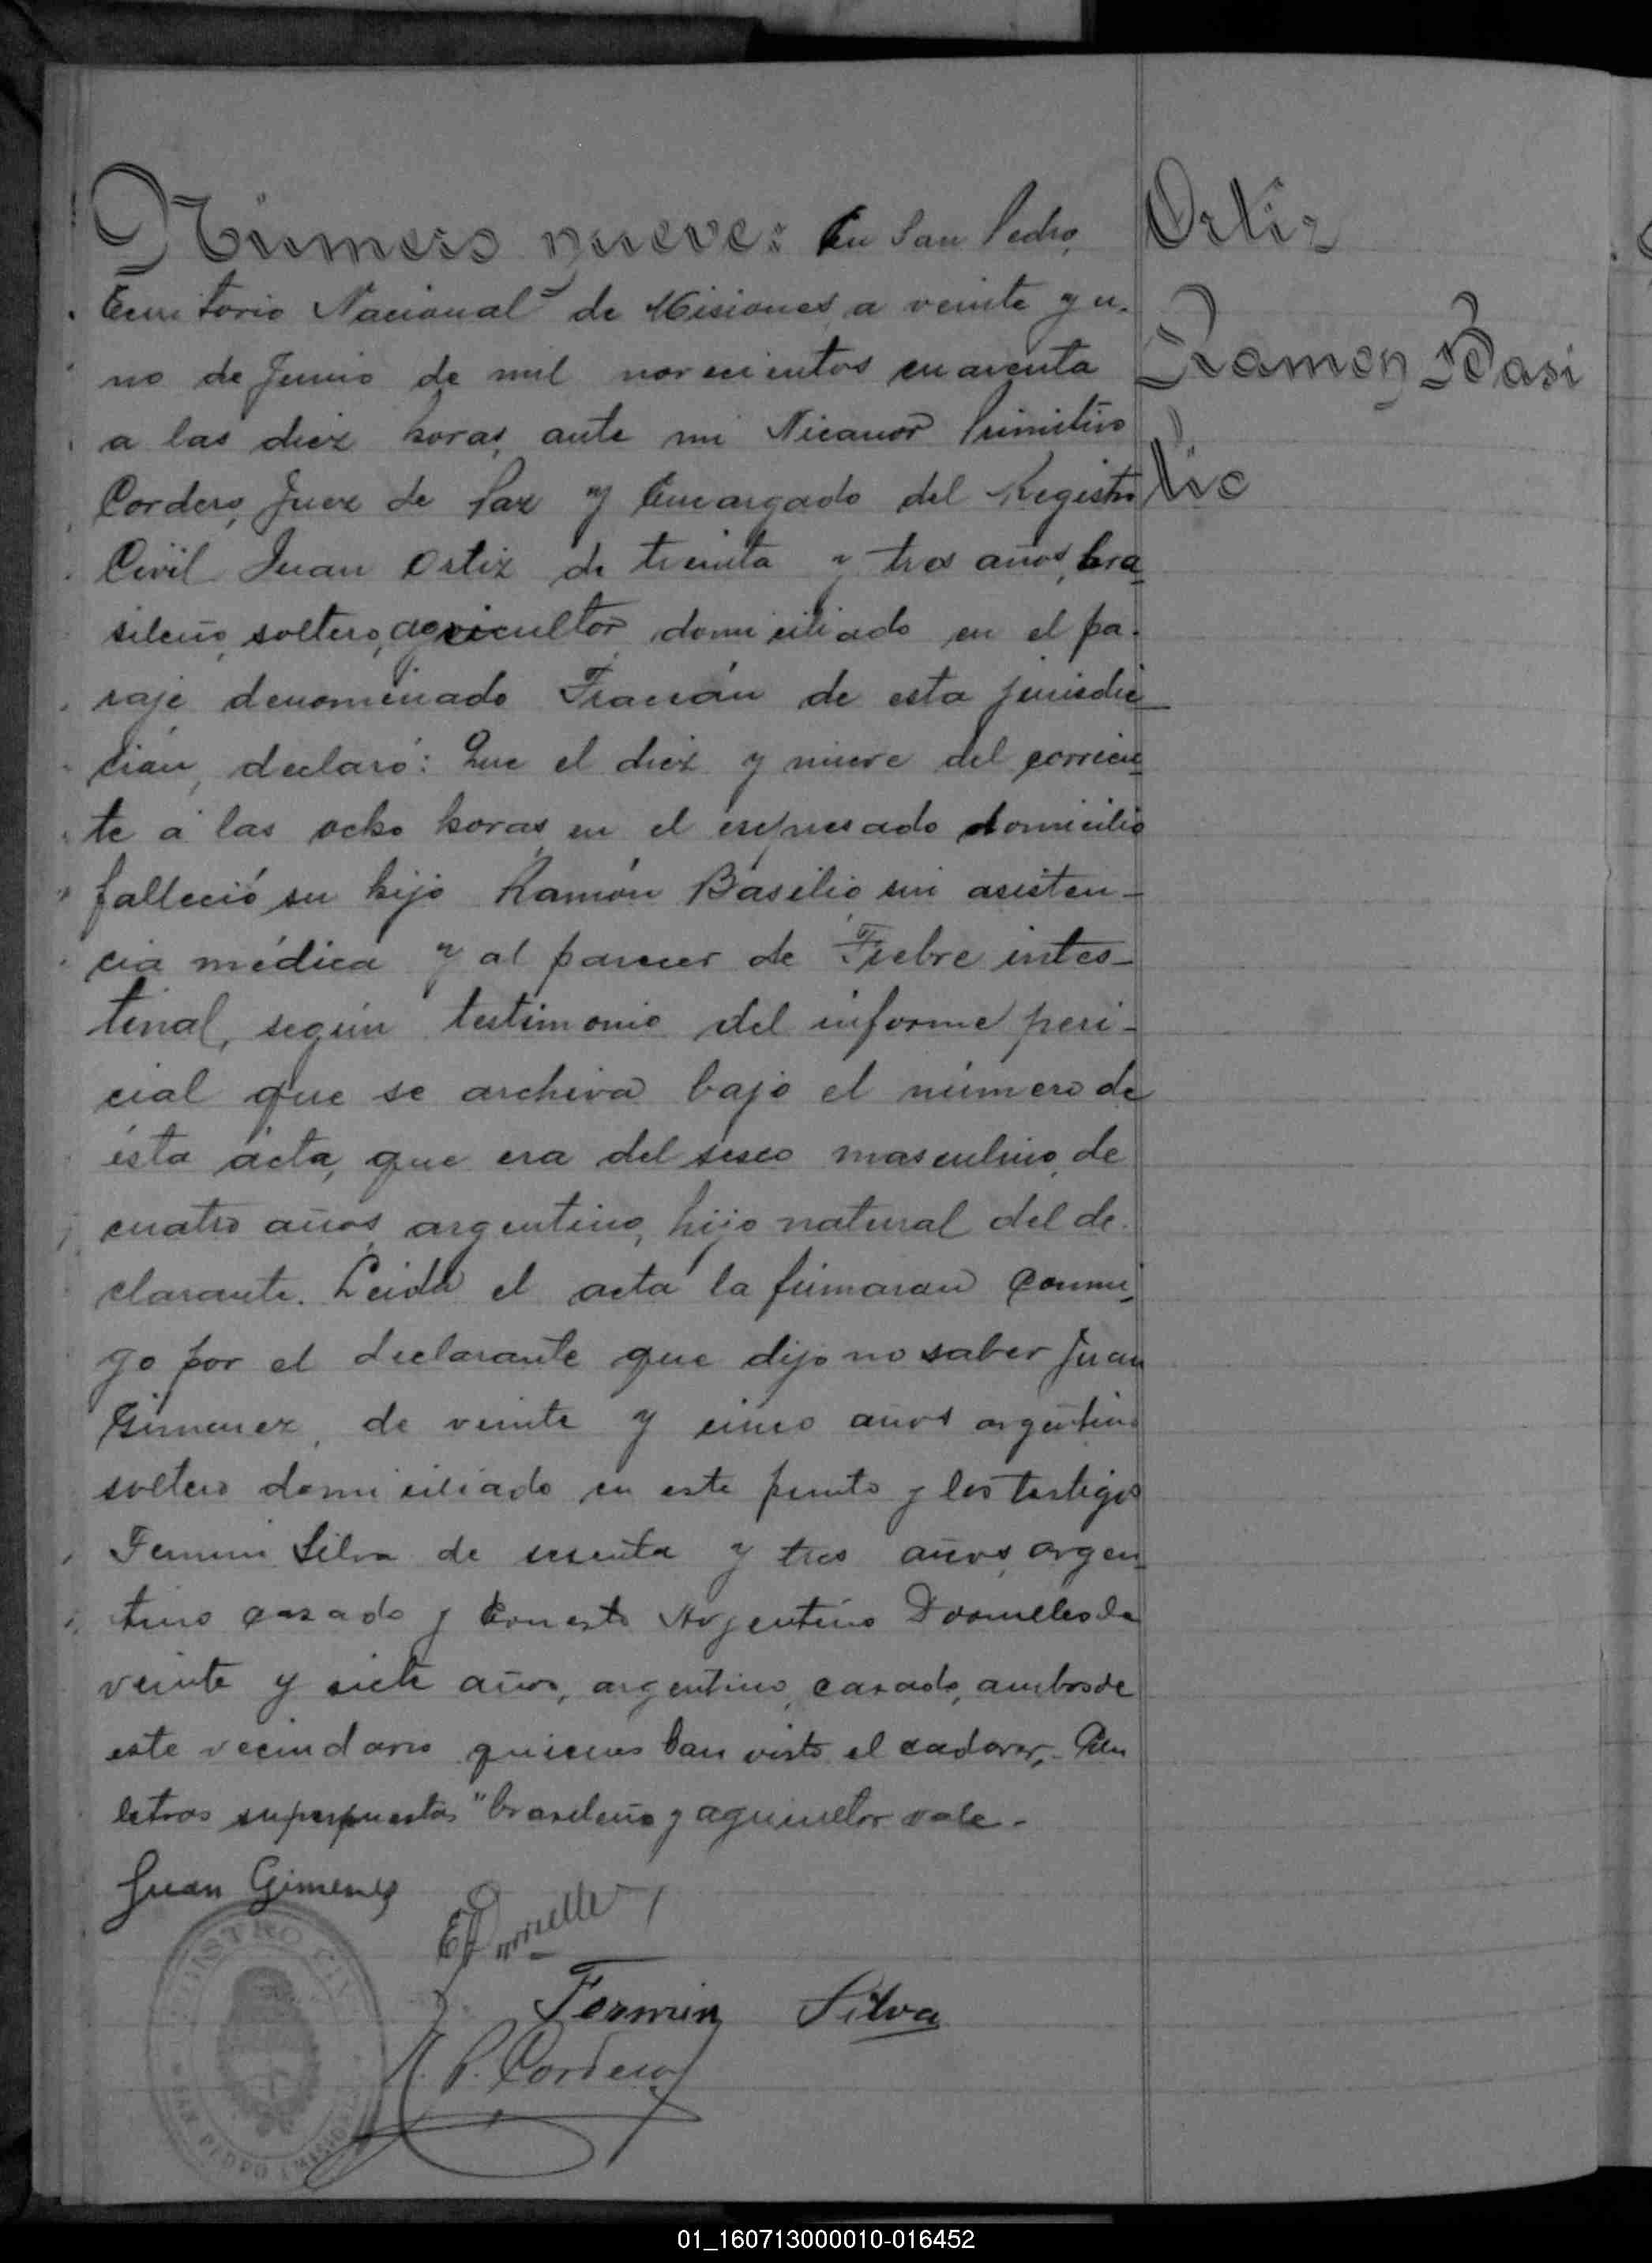 Número nueve: En San Pedro,
Territorio Nacional de Misiones a veinte y u-
no de Junio de mil novecientos cuarenta
a las diez horas, ante mi Nicanor Primitivo
Cordero, Juez de Paz y Encargado del Registro
Civil Juan Ortiz de treinta y tres años, bra
sileño, soltero, agricultor domiciliado en el pa-
raje denominado Fracrán de esta jurisdic
ción, declaró: Que el diez y nueve del corrien
te a las ocho horas, en el expresado domicilio
falleció su hijo Ramón Basilio sin asisten-
cia médica y al parecer de Fiebre intes-
tinal, según testimonio del informe peri-
cial que se archiva bajo el número de
ésta ácta, que era del sexo masculino, de
cuatro años, argentino, hijo natural del de-
clarante. Leida el acta la firmaran conmi
go por el declarante que dijo no saber Juan
Gimenez, de veinte y cinco años argentino
soltero domiciliado en este punto y los testigos
Fermin Silva de sesenta y tres años, argen
tino casado y Ernesto Argentino Dornelles de
veinte y siete años, argentino, casado, ambos de
este vecindario quienes han visto el cadaver.
letras superpuestas "brasileño y agricultor vale.-
Juan Gimenez
E Dornelles
Fermin Silva
N. P. Cordero
Ortiz
Ramon Basi
lio
REGISTRO CIVIL
SAN PEDRO (MISIONES)
01_160713000010-016452